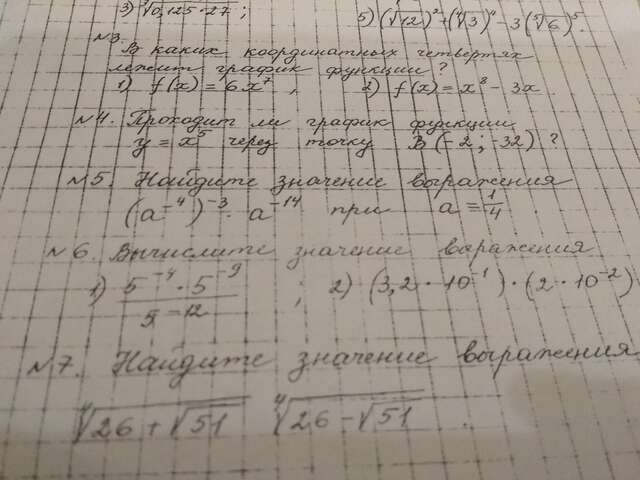 3) ∛0,125·27 ; 5) (√12)² + (∜3)⁴ - 3(⁵√6)⁵.
№3.
В каких координатных четвертях
лежит график функции?
1) f(x) = 6x⁷ , 2) f(x) = x⁸ - 3x.
№4. Проходит ли график функции
y = x⁵ через точку В (-2; -32)?
№5. Найдите значение выражения
(a⁻⁴)⁻³ · a⁻¹⁴ при a = 1/4
№6. Вычислите значение выражения
1) 5⁻⁴ · 5⁻⁹ / 5⁻¹² ; 2) (3,2 · 10⁻¹) · (2 · 10⁻²)
№7. Найдите значение выражения
∜26 + √51 ∜26 - √51 .